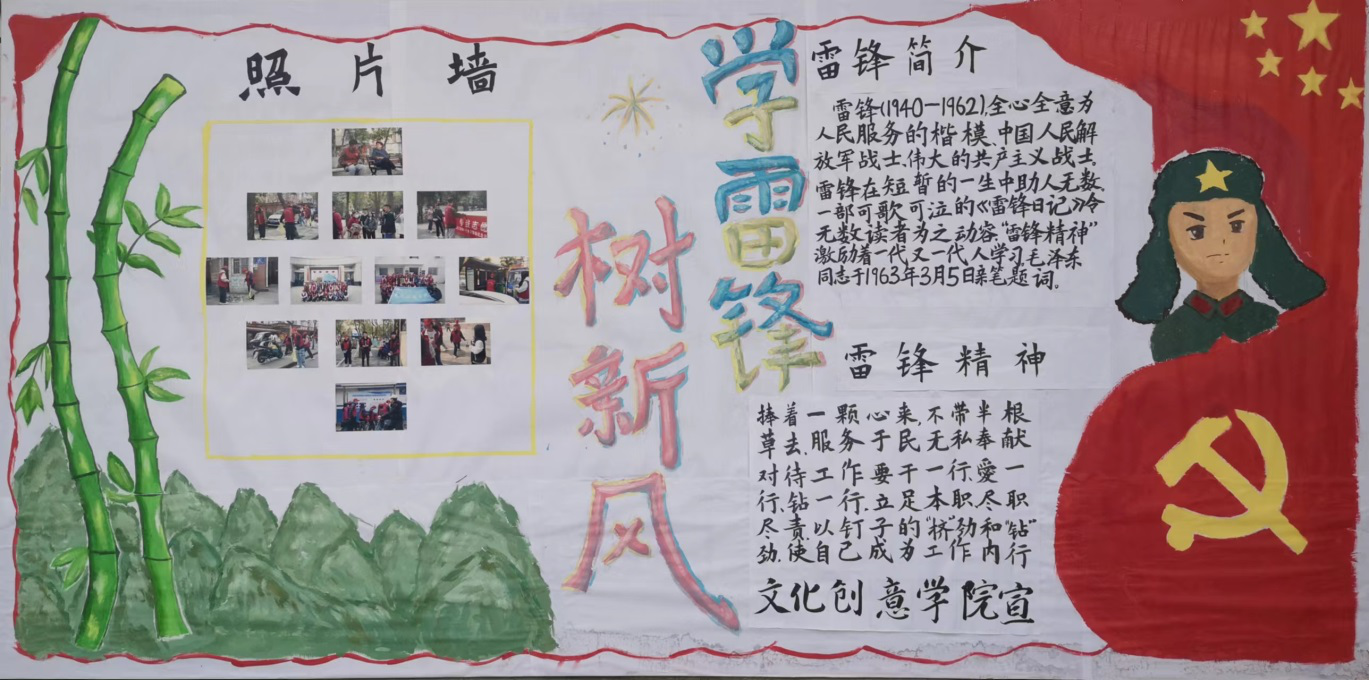 照片墙
学雷锋
树新风
雷锋简介
雷锋(1940—1962),全心全意为
人民服务的楷模、中国人民解
放军战士、伟大的共产主义战士,
雷锋在短暂的一生中助人无数,
一部可歌可泣的《雷锋日记》令
无数读者为之动容“雷锋精神”
激励着一代又一代人学习毛泽东
同志于1963年3月5日亲笔题词。
雷锋精神
捧着一颗心来,不带半根
草去,服务于民无私奉献
对待工作要干一行、爱一
行、钻一行,立足本职、尽职
尽责,以钉子的“挤”劲和“钻”
劲,使自己成为工作内行
文化创意学院宣